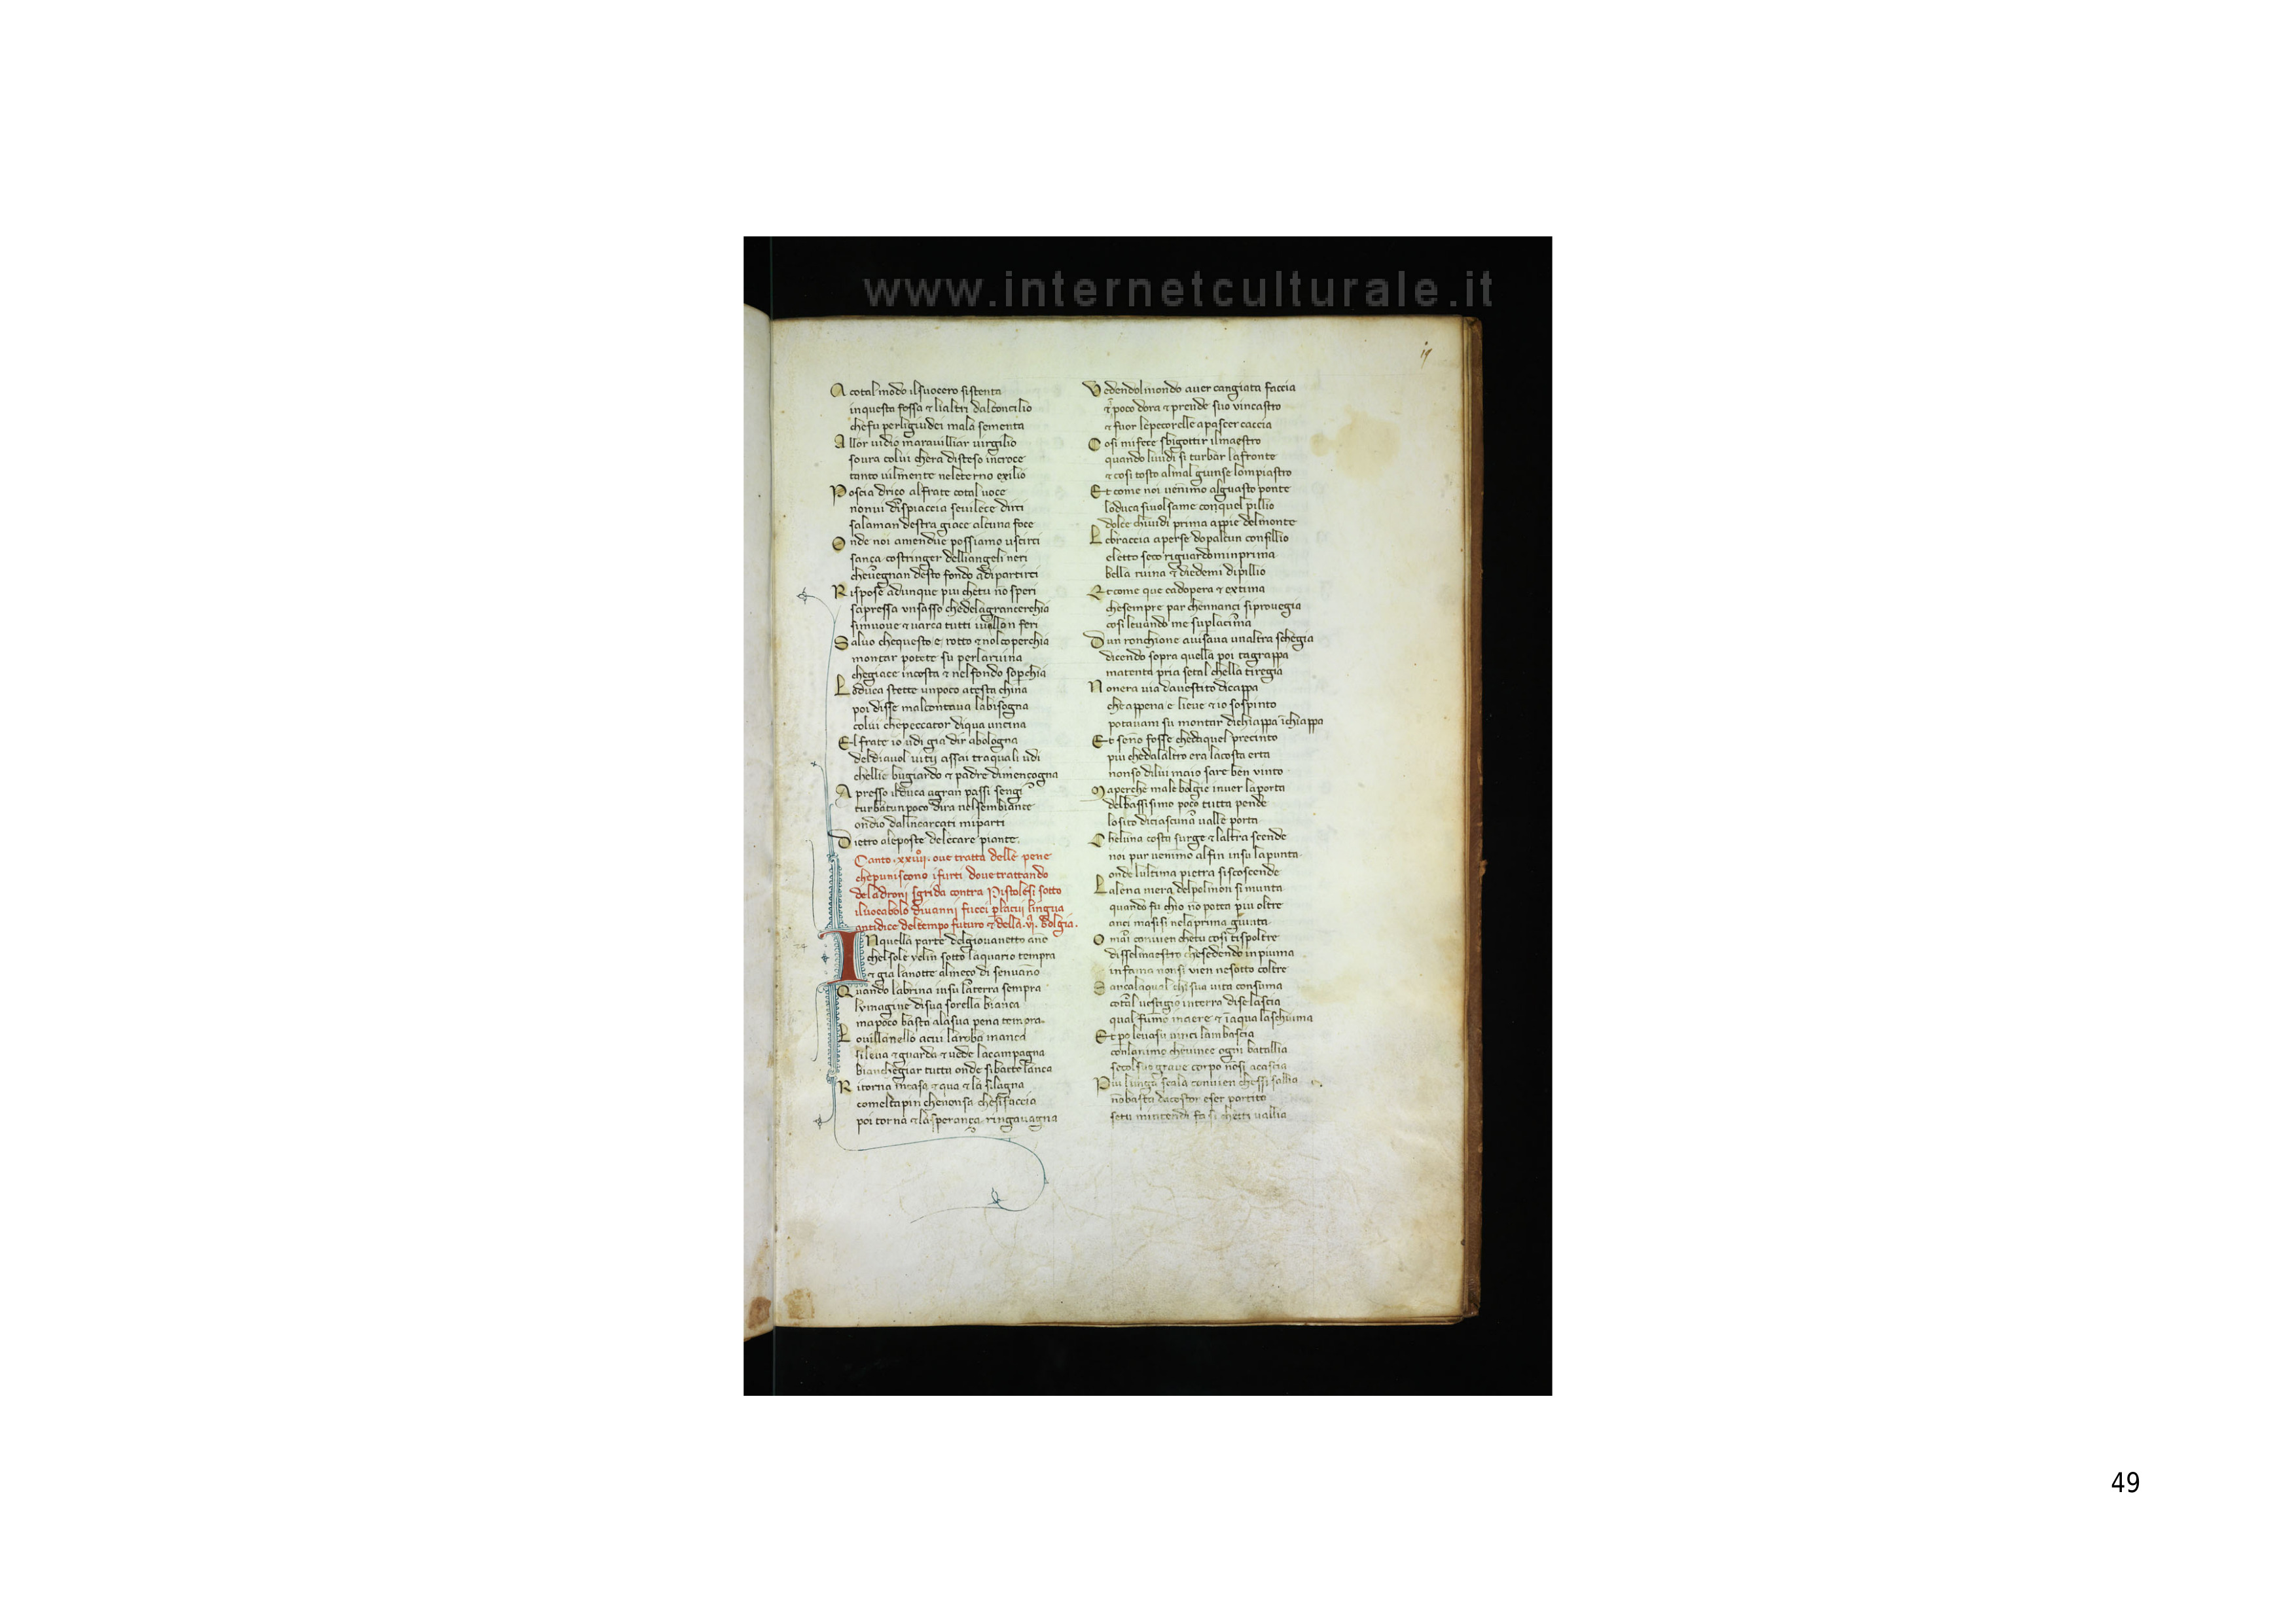 www.internetculturale.it
19
A cotal modo il suocero si stenta
in questa fossa et li altri dal concilio
che fu per li giudei mala sementa
Allor vidio maravilliar virgilio
sovra colui chera disteso in croce
tanto vilmente neleterno exilio
Poscia driço al frate cotal voce
non vi dispiaccia se vi lece dirci
sa la man destra giace alcuna foce
Onde noi amendue possiamo uscirci
sança costringer delli angeli neri
che vegnan desto fondo a dipartirci
Rispose adunque piu che tu nō speri
sapressa un sasso che de la gran cerchia
si muove et varca tutti i vallon feri
Salvo che questo e rotto et nol coperchia
montar potete su per la ruina
che giace in costa et nel fondo sopchia
Lo duca stette un poco a testa china
poi disse mal contava la bisogna
colui che peccator di qua uncina
El frate io udi gia dir a bologna
del diavol vitii assai tra quali udi
chellie bugiardo et padre di mençogna
Apresso il duca a gran passi sen gi
turbato un poco dira nel sembiante
ondio dallincarcati mi parti
Dietro a le poste de le care piante.
Canto .xxiiii. ove tratta delle pene
che puniscono i furti dove trattando
de ladroni sgrida contra Pistolesi sotto
il vocabolo di vanni fucci p la cui lingua
antidice del tempo futuro et della .vi. bolgia.
IN quella parte del giovanetto anno
chel sole i crin sotto laquario tempra
et gia la notte al meço di sen vanno
Quando la brina in su la terra sempra
lymagine di sua sorella bianca
ma poco basta a la sua pena tempra
Lo villanello a cui la roba manca
si leva et guarda et vede la campagna
biancheggiar tutta onde si batte lanca
Ritorna in casa et qua et la si lagna
comel tapin che non sa che si faccia
poi torna et la sperança ringavagna
Vedendol mondo aver cangiata faccia
in poco dora et prende suo vincastro
et fuor le pecorelle a pascer caccia
Cosi mi fece sbigottir il maestro
quando li vidi si turbar la fronte
et cosi tosto al mal giunse lompiastro
Et come noi venimo al guasto ponte
lo duca si volsa me con quel pillio
dolce chi vidi prima appie del monte
Le braccia aperse dopo alcun consillio
eletto seco riguardo in prima
bella ruina et diedemi di pillio
Et come que cadopera et extima
che sempre par chennanci si provegia
cosi levando me su per la cima
Dun ronchione avisava unaltra schegia
dicendo sopra quella poi tagrappa
ma tenta pria se tal chella ti regia
Non era via da vestito di cappa
che appena e lieve et io sospinto
potavam su montar di chiappa in chiappa
Et se nō fosse che da quel precinto
piu che da laltro era la costa erta
non so di lui ma io sare ben vinto
Ma perche malebolgie inver la porta
del bassisimo poco tutta pende
lo sito di ciascuna valle porta
Che luna costa surge et laltra scende
noi pur venimo al fin in su la punta
onde lultima pietra si scoscende
La lena mera del polmon si munta
quando fu chio nō potea piu oltre
anci masisi ne la prima giunta
Omai convien che tu cosi ti spoltre
dissel maestro che sedendo in piuma
in fama non si vien ne sotto coltre
Sança la qual chi sua vita consuma
cotal vestigio in terra di se lascia
qual fummo in aere et in aqua la schiuma
Et po leva su vinci lambascia
con lanimo che vince ogni batallia
se col suo grave corpo nō si acascia
Piu lunga scala convien che ssi sallia
nō basta da costor eser partito
se tu mi intendi fa si che tti vallia
49